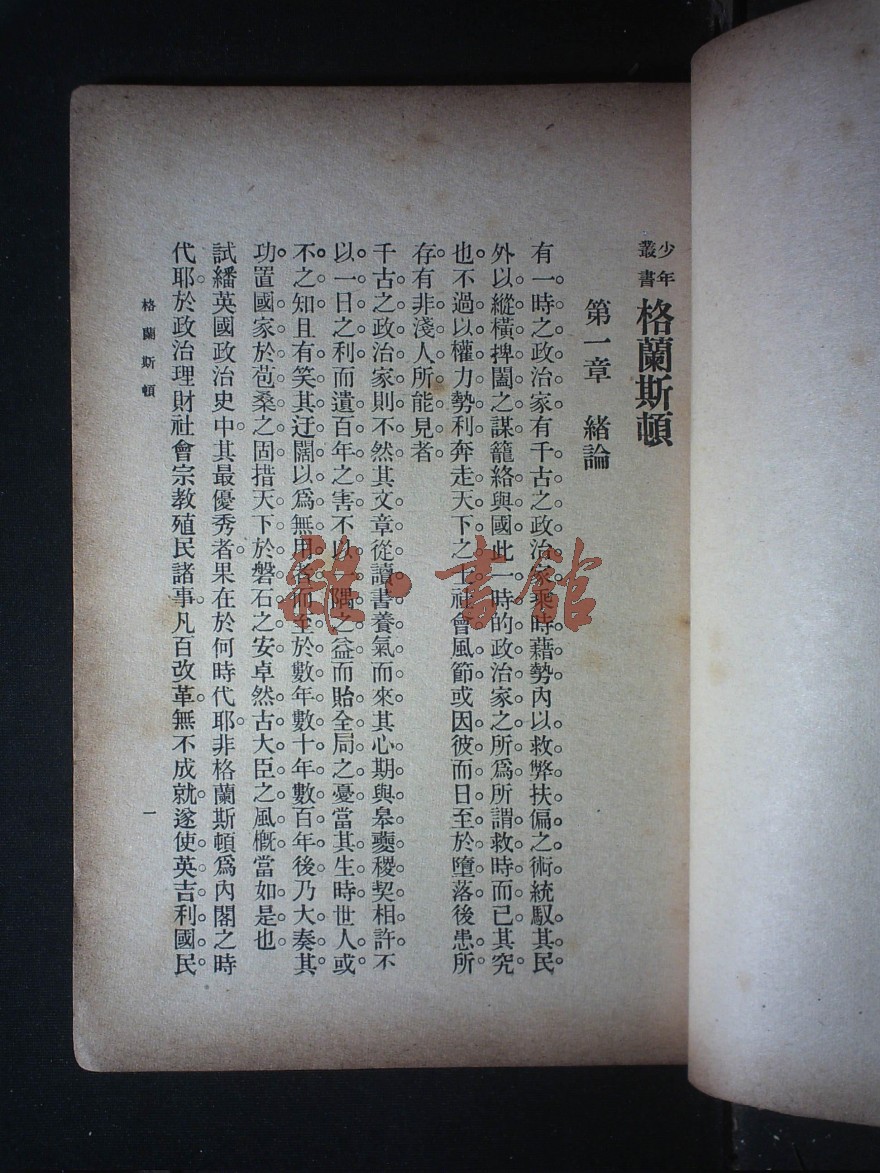 少年
叢書
格蘭斯頓
第一章　緒論
有一時之政治家有千古之政治家乘時藉勢內以救弊扶偏之術統馭其民
外以縱橫捭闔之謀籠絡與國此一時的政治家之所爲所謂救時而已其究
也不過以權力勢利奔走天下之士社會風節或因彼而日至於墮落後患所
存有非淺人所能見者
千古之政治家則不然其文章從讀書養氣而來其心期與皋夔稷契相許不
以一日之利而遺百年之害不以一隅之益而貽全局之憂當其生時世人或
不之知且有笑其迂闊以爲無用者而至於數年數十年數百年後乃大奏其
功置國家於苞桑之固措天下於磐石之安卓然古大臣之風概當如是也
試繙英國政治史中其最優秀者果在於何時代耶非格蘭斯頓爲內閣之時
代耶於政治理財社會宗教殖民諸事凡百改革無不成就遂使英吉利國民
格蘭斯頓
一
雜·書館